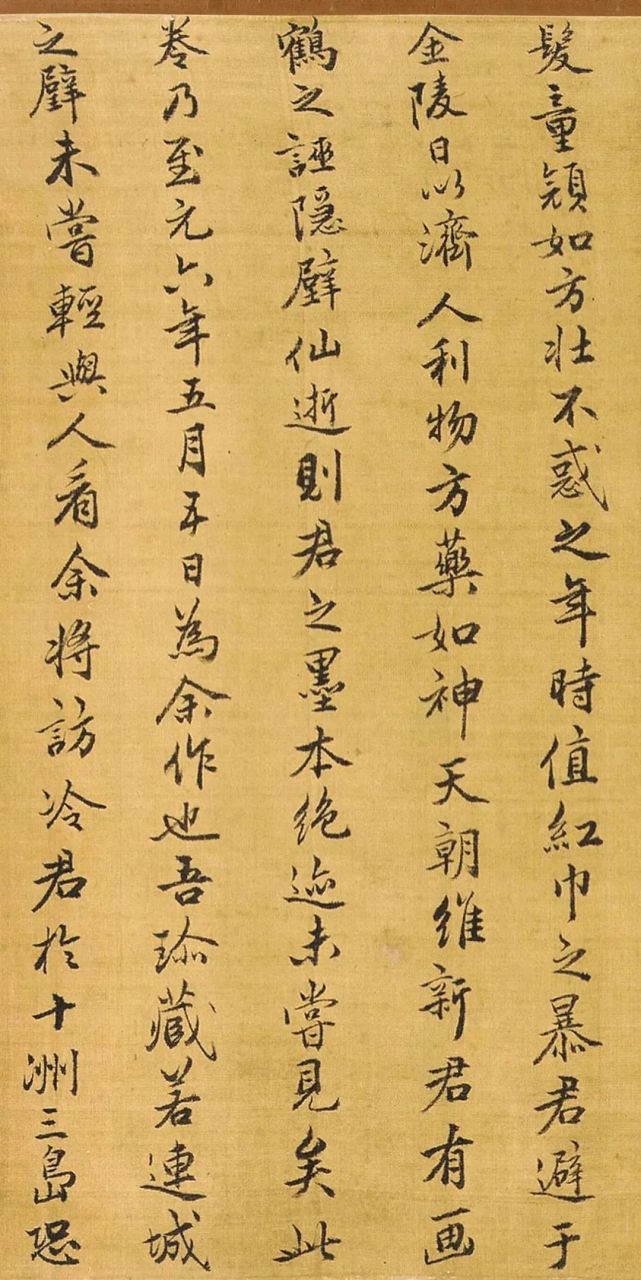 髮童顔如方壯不惑之年時值紅巾之暴君避于
金陵日以濟人利物方藥如神天朝維新君有画
鶴之誣隱壁仙逝則君之墨本絶迹未嘗見矣此
卷乃至元六年五月五日為余作也吾珎藏若連城
之璧未嘗輕與人看余将訪冷君於十洲三島恐